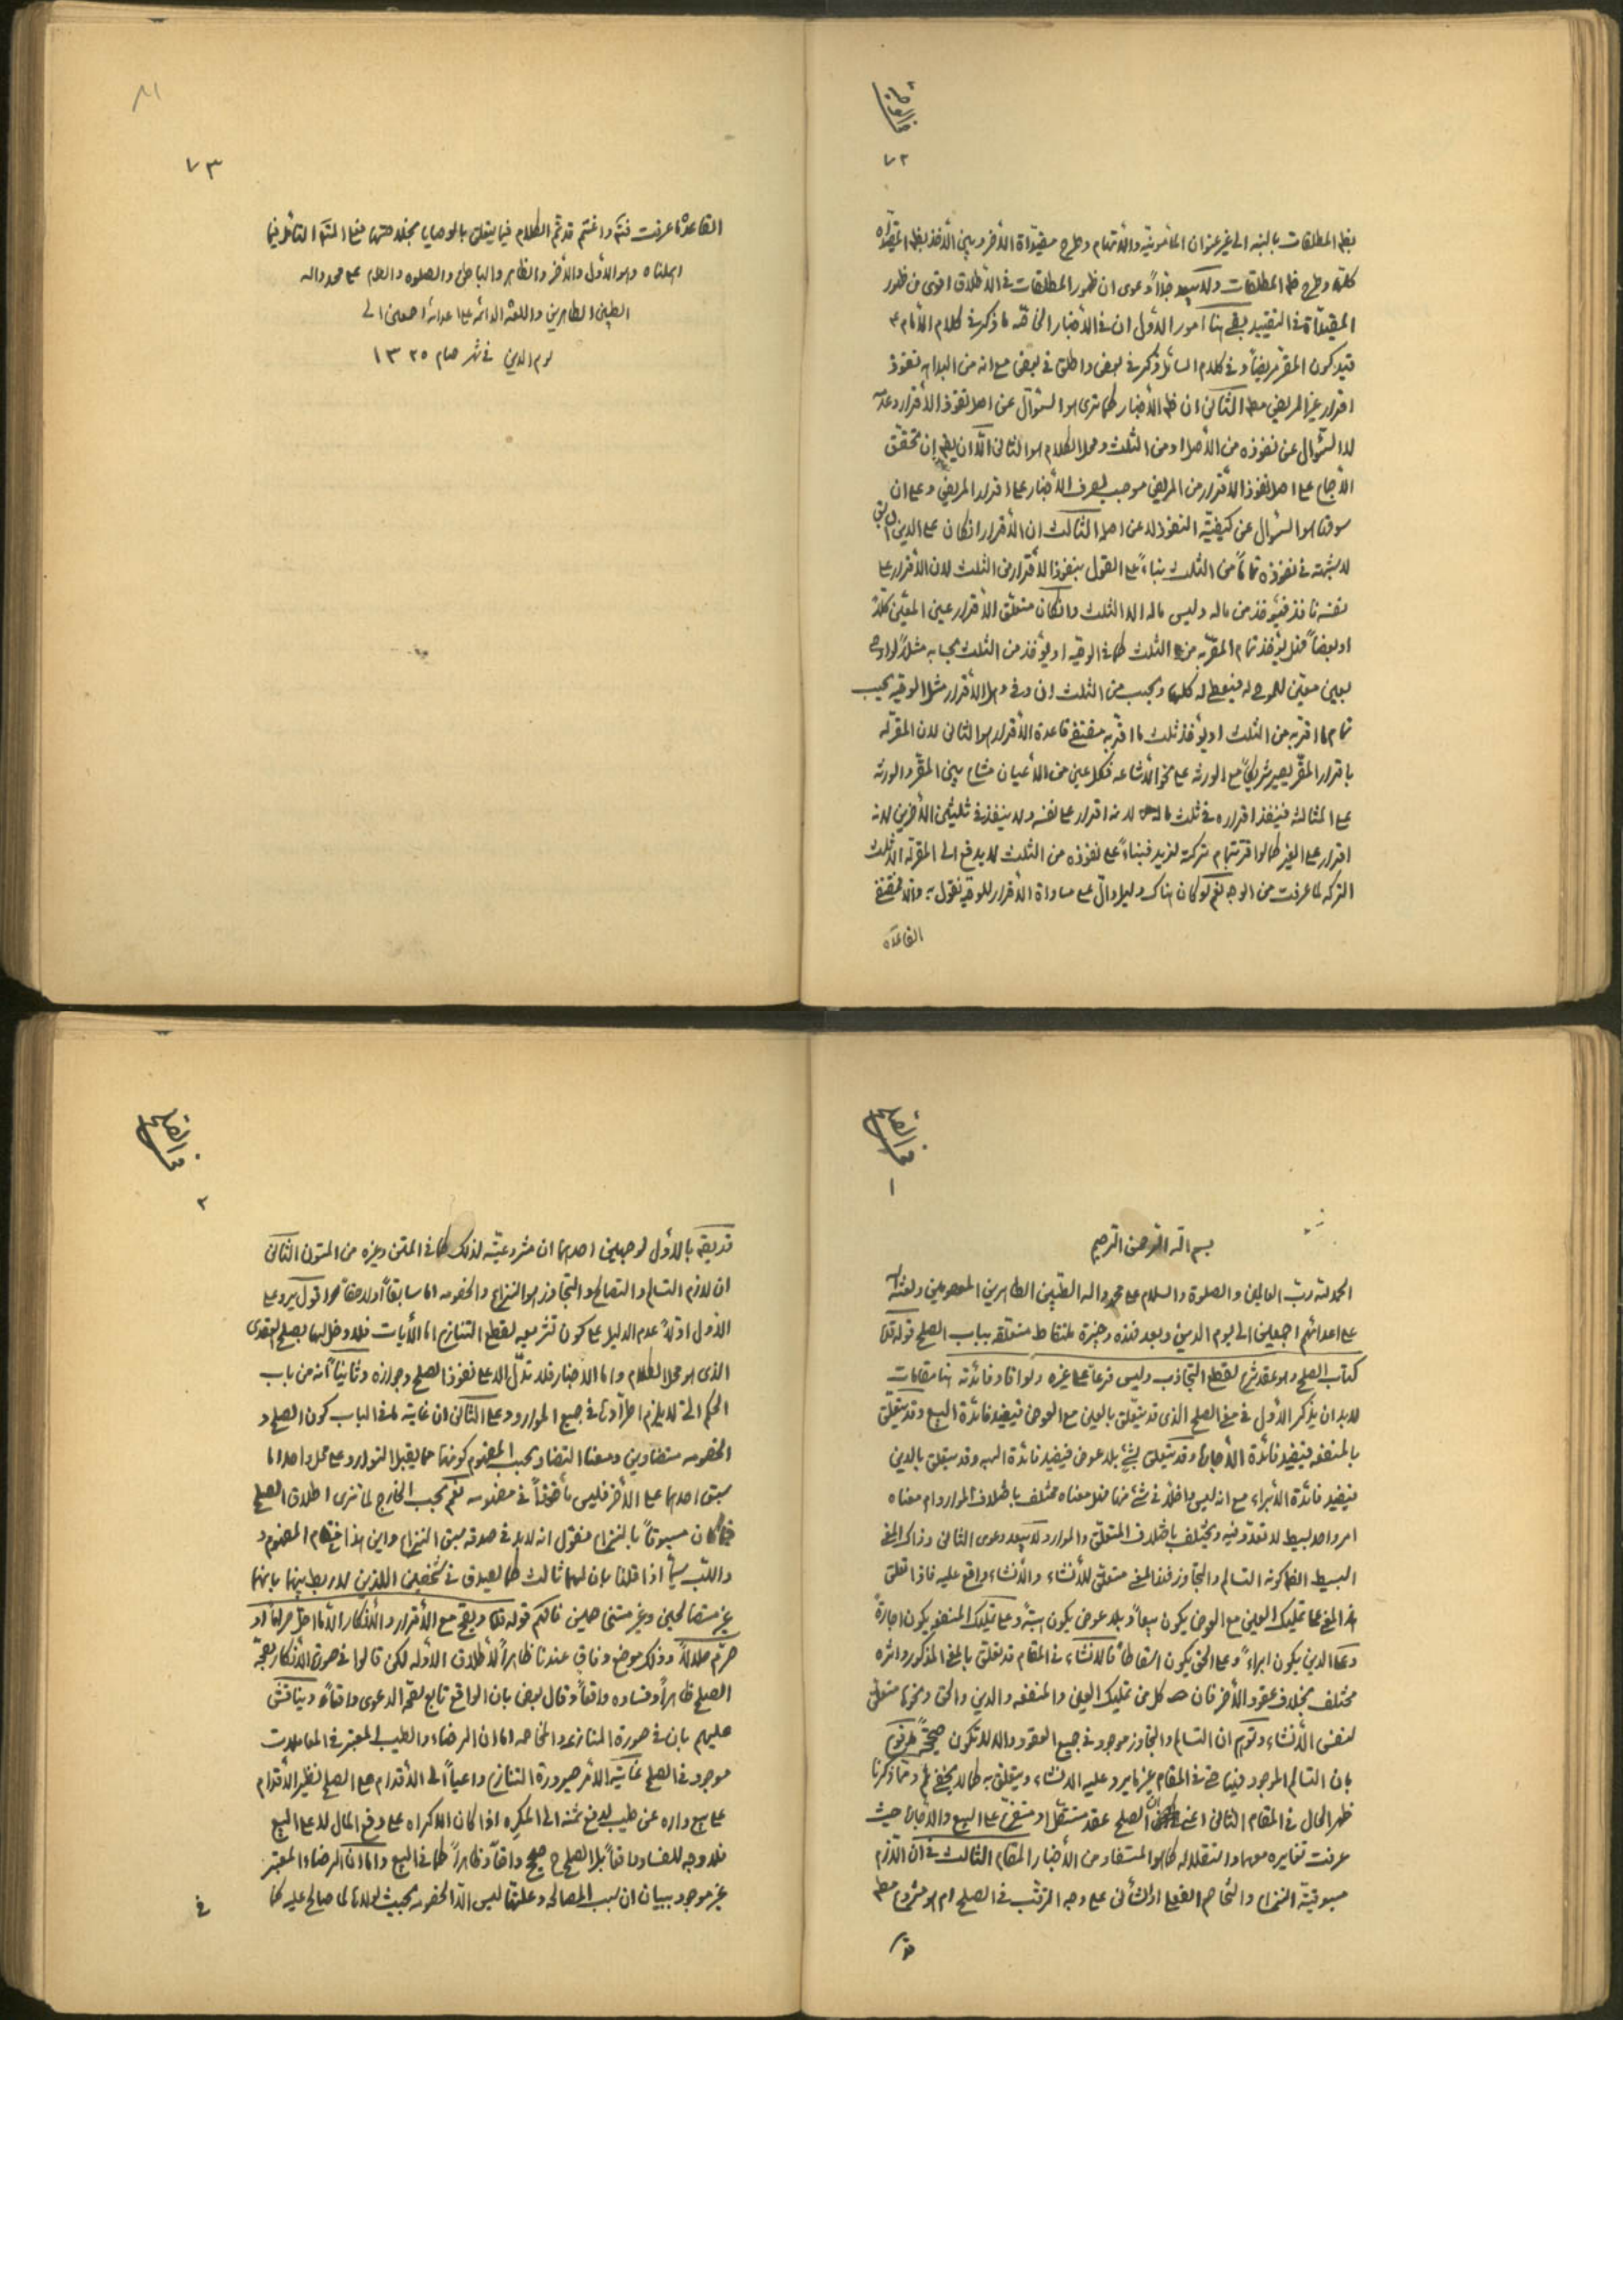 ٧٢
بظ المطلقات بالنسبه الى غير عنوان المأمونية والأتهام وطرح مقيداة الأخر وبين الأخذ بظ المقيداة
كلية وطرح ظ المطلقات ولا يبعد جداً دعوى ان ظهور المطلقات فى الأطلاق اقوى من ظهور
المقيداة فى التقييد بقى هنا امور الأول ان فى الأخبار الخاصه ما ذكر فى كلام الأمام ع
قيد كون المقر مريضاً وفى كلام السائل ذكر فى بعض واطلق فى بعض مع انه من البداهه نفوذ
اقرار غير المريض مطه الثانى ان ظ الأخبار كما ترى هو السئوال عن اصل نفوذ الأقرار وعدمه
لا السئوال عن نفوذه من الأصل او من الثلث ومحل الكلام هو الثانى الا ان يقه ان تحقق
الأجماع على اصل نفوذ الأقرار من المريض موجب لصرف الأخبار على اقرار المريض وعلى ان
سوقها هو السئوال عن كيفية النفوذ لا عن اصله الثالث ان الأقرار ان كان على الدين
لا شبهة فى نفوذه تماماً من الثلث بناءً على القول بنفوذ الأقرار من الثلث لان الأقرار على
نفسه نافذ فيئوخذ من ماله وليس ماله الا الثلث وان كان متعلق الأقرار عين المعين كلاً
او بعضاً فهل يؤخذ تمام المقر به من الثلث كما فى الوصيه او يؤخذ من الثلث بحسابه مثلاً لو اوصى
بعين معين للموصى له فيعطى له كلها ويحسب من الثلث ان وفى وهل الأقرار مثل الوصيه يحسب
تمام ما اقر به من الثلث او يؤخذ ثلث ما اقر به مقتضى قاعدة الأقرار هو الثانى لان المقر له
باقرار المقر يصير شريكاً مع الورثه على نحو الأشاعه فكل عين من الأعيان مشاع بين المقر والورثه
على المثالثه فينفذ اقراره فى ثلث ماله لانه اقرار على نفسه ولا ينفذ فى ثلثين الأخرين لانه
اقرار على الغير كما لو اقر بتمام تركته لزيد فبناءً على نفوذه من الثلث لا يدفع الى المقر له الا ثلث
التركه لما عرفت من الوجه نعم لو كان هناك دليل دال على مساواة الأقرار للوصيه نقول به والا فمقتضى
القاعده
٧٣
القاعدة ما عرفت فتم واغتنم قد تم الكلام فيما يتعلق بالوصايا
املناه وهو الأول والأخر والظاهر والباطن والصلوه والسلم على محمد واله
الطيبن الطاهرين واللعنة الدائمه على اعدائه اجمعين الى
يوم الدين فى شهر صيام ١٣٢٥
١
بسم الله الرحمن الرحيم
الحمد لله رب العالمين والصلوة والسلام على محمد واله الطيبين الطاهرين المعصومين ولعنة الله
على اعدائهم اجمعين الى يوم الدين وبعد فهذه وجيزة ملتقاط متعلقه بباب الصلح قوله قده
كتاب الصلح وهو عقد شرع لقطع التجاذب وليس فرعاً على غيره ولو افاد فائدته هنا مقامات
لا بد ان يذكر الأول فى معنى الصلح الذى قد يتعلق بالعين مع العوض فيفيد فائدة البيع وقد يتعلق
بالمنفعه فيفيد فائدة الأجاره وقد يتعلق بشئ بلا عوض فيفيد فائدة الهبه وقد يتعلق بالدين
فيفيد فائدة الأبراء مع انه ليس داخلا فى شئ منها فهل معناه مختلف باختلاف الموارد ام معناه
امر واحد بسيط لا تعدد فيه ويختلف باختلاف المتعلق والموارد لا يبعد دعوى الثانى وذاك المعنى
البسيط الظ كونه التسالم والتجاوز فهذا المعنى متعلق للأنشاء والأنشاء واقع عليه فاذا تعلق
هذا المعنى على تمليك العين مع العوض يكون بيعاً وبلا عوض يكون هبةً وعلى تمليك المنفعه يكون اجارةً
وعلى الدين يكون ابراءً وعلى الحق يكون اسقاطاً فالأنشاء فى المقام قد تعلق بالمعنى المذكور واثره
مختلف بخلاف عقود الأخر فان كل من تمليك العين والمنفعه والدين والحق ونحوها متعلق
لنفس الأنشاء وتوهم ان التسالم والتجاوز موجود فى جميع العقود والا لا تكون صحيحةً مدفوع
بان التسالم الموجود فيها حتى فى المقام غير ما يرد عليه الأنشاء ويتعلق به كما لا يخفى ومما ذكرنا
ظهر الحال فى المقام الثانى اعنى ان الصلح عقد مستقل او متفرع على البيع والأجاره حيث
عرفت تغايره معها واستقلاله كما هو المستفاد من الأخبار المقام الثالث فى ان اللازم
مسبوقية النزاع والتخاصم الفعلى او الشأنى على وجه الترتب فى الصلح ام هو مشروع مطه
قد
٢
قد يقه بالأول لوجهين احدهما ان مشروعيته لذلك كما فى المتن وغيره من المتون الثانى
ان لازم التسالم والتصالح والتجاوز هو النزاع والخصومه اما سابقاً او لاحقاً اقول يرد على
الأول اولاً عدم الدليل على كون تشريعه لقطع التنازع اما الأيات فلا دخل لها بصلح العقدى
الذى هو محل الكلام واما الأخبار فلا تدل الا على نفوذ الصلح وجوازه وثانياً انه من باب
الحكم التى لا يلزم اطرادها فى جميع الموارد وعلى الثانى ان غاية ما فى الباب كون الصلح و
الخصومه متضادين ومعنى التضاد بحسب المفهوم كونهما مما يقبلا التوارد على محل واحد اما
سبق احدهما على الأخر فليس مأخوذاً فى مفهومه نعم بحسب الخارج لما ترى اطلاق الصلح
فيما كان مسبوقاً بالنزاع فنقول انه لا بد فى صدقه سبق النزاع واين هذا المفهوم و
واللب سيما اذا قلنا بان لهما ثالث كما يصدق فى شخصين اللذين لا ربط بينهما بانهما
غير متصالحين وغير متنازعين فافهم قوله قده ويصح مع الأقرار والأنكار الا ما احل حراماً او
حرم حلالاً وذلك موضع وفاق عندنا ظاهراً لأطلاق الأدله لكن قالوا فى صورة الأنكار بصحة
الصلح ظاهراً وفساده واقعاً وقال بعض بان الواقع تابع لصحه الدعوى واقعاً ويناقش
عليهم بان فى صورة المنازعه والمخاصمه اما ان الرضاء والطيب المعتبر فى المعاملات
موجود فى الصلح غاية الأمر صيرورة التنازع داعياً الى الأقدام على الصلح نظير الأقدام
على بيع داره عن طيب لدفع ثمنه الى المكره اذا كان الأكراه على دفع المال لا على البيع
فلا وجه للفساد واقعاً بل الصلح ح صحيح واقعاً وظاهراً كما فى البيع واما ان الرضاء المعتبر
غير موجود ببيان ان سبب المصالحه وعلتها ليس الا الخصومه بحيث لولاها لما صالح عليه كما
فى